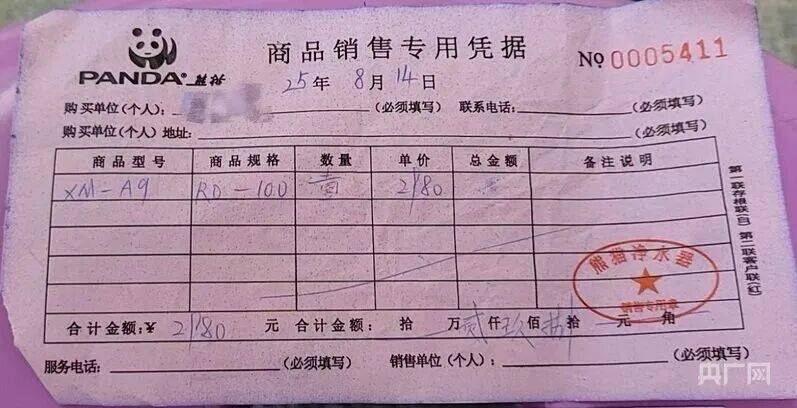 PANDA® 熊猫
商品销售专用凭据
No 0005411
25年8月14日
购买单位(个人): (必须填写) 联系电话: (必须填写)
购买单位(个人)地址: (必须填写)
商品型号 商品规格 数量 单价 总金额 备注说明
XM-A9 RO-100 壹 2180
合计金额:¥ 2180 元 合计金额: 拾 万 贰仟 佰 拾 元 角
服务电话: (必须填写) 销售单位(个人): (必须填写)
第一联存根联(白) 第二联客户联(红)
熊猫净水器
销售专用章
央广网